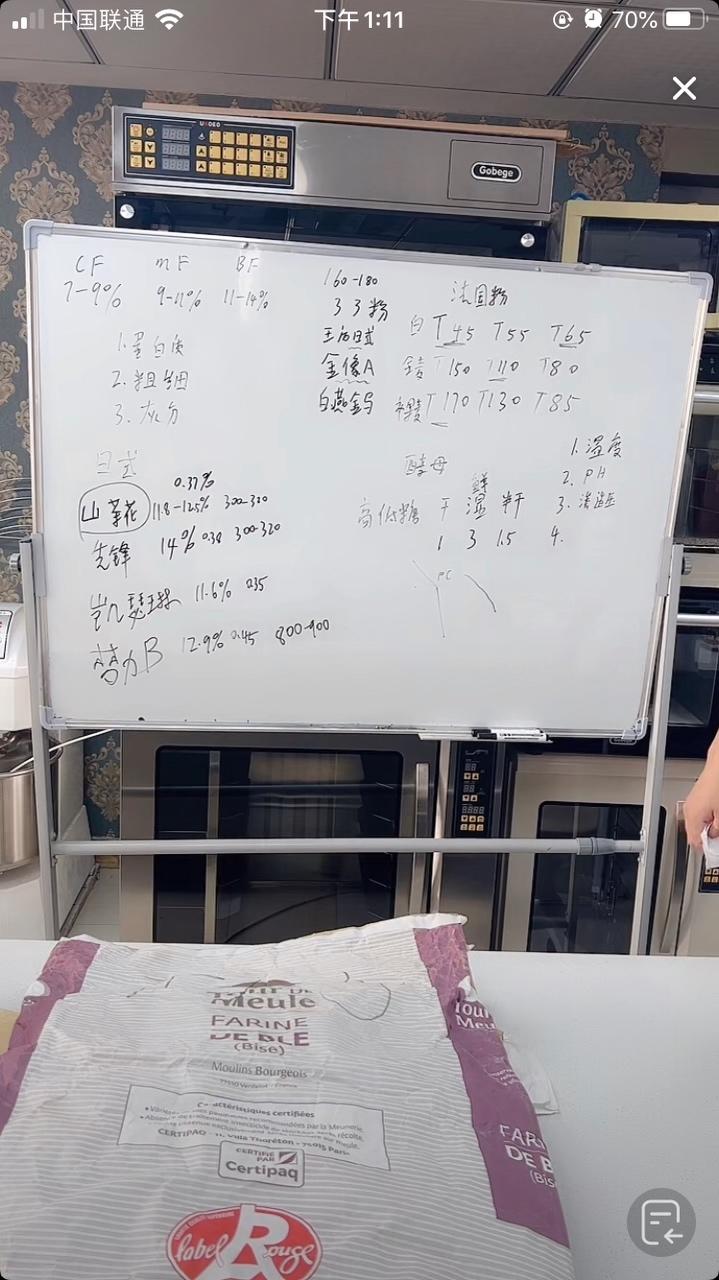 中国联通
下午1:11
70%
Gobege
CF mF BF
7-9% 9-11% 11-14%
1.蛋白质
2.粗细
3.灰分
160-180
33粉
王后日式
金像A
白燕金号
法国粉
白 T45 T55 T65
T150 T110 T80
T170 T130 T85
日式
0.37%
山茶花 11.8-12.5% 300-320
先锋 14% 0.38 300-320
凯瑟琳 11.6% 0.35
梦力B 12.9% 0.45 800-900
酵母
鲜
高低糖 干 湿 半干
1 3 1.5
1.温度
2.PH
3.渗透压
4.
PC
Meule
FARINE
DE BLE
(Bise)
Moulins Bourgeois
Caractéristiques certifiées
CERTIPAQ
CERTIFIÉ
PAR
Certipaq
label Rouge
Tour
Meu
FARI
DE B
(Bis